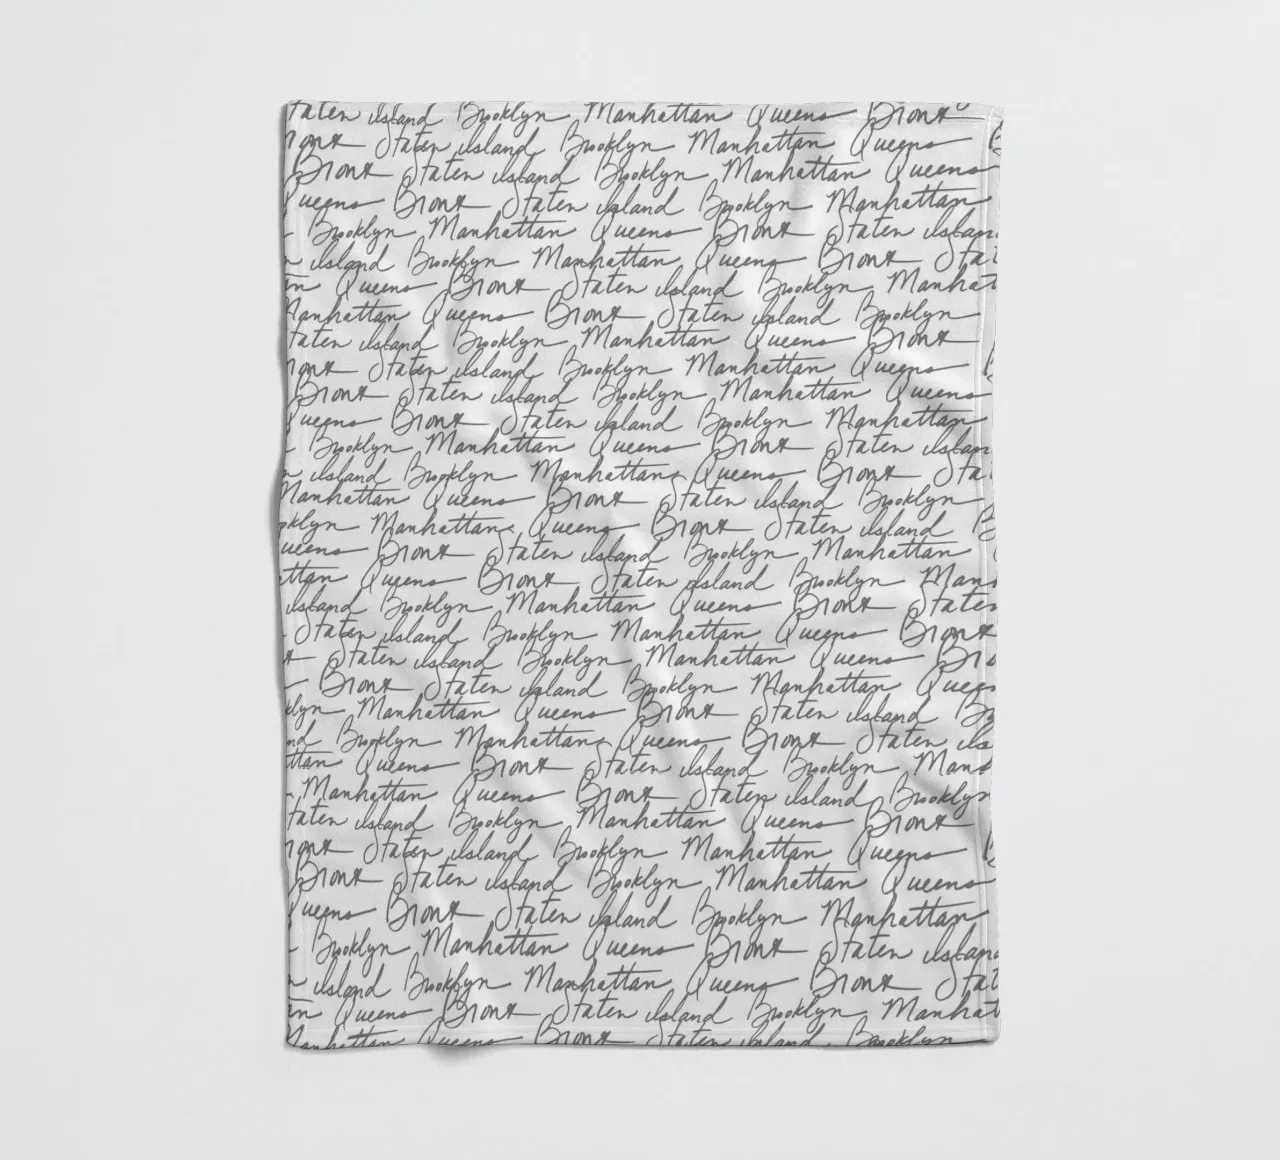 Staten Island Brooklyn Manhattan Queens Bronx
Bronx Staten Island Brooklyn Manhattan Queens B
Bronx Staten Island Brooklyn Manhattan Queens
Queens Bronx Staten Island Brooklyn Manhattan
Brooklyn Manhattan Queens Bronx Staten Islan
n Island Brooklyn Manhattan Queens Bronx Stat
an Queens Bronx Staten Island Brooklyn Manhat
Manhattan Queens Bronx Staten Island Brooklyn
taten Island Brooklyn Manhattan Queens Bronx
ronx Staten Island Brooklyn Manhattan Queens B
Bronx Staten Island Brooklyn Manhattan Queens
Queens Bronx Staten Island Brooklyn Manhattan
Brooklyn Manhattan Queens Bronx Staten Islan
n Island Brooklyn Manhattan Queens Bronx Stat
Manhattan Queens Bronx Staten Island Brooklyn
oklyn Manhattan Queens Bronx Staten Island B
ueens Bronx Staten Island Brooklyn Manhattan
ttan Queens Bronx Staten Island Brooklyn Manh
Island Brooklyn Manhattan Queens Bronx Staten
Staten Island Brooklyn Manhattan Queens Bronx
x Staten Island Brooklyn Manhattan Queens Bro
Bronx Staten Island Brooklyn Manhattan Queen
klyn Manhattan Queens Bronx Staten Island B
nd Brooklyn Manhattan Queens Bronx Staten Is
ttan Queens Bronx Staten Island Brooklyn Manh
Manhattan Queens Bronx Staten Island Brooklyn
taten Island Brooklyn Manhattan Queens Bronx
ronx Staten Island Brooklyn Manhattan Queens B
Bronx Staten Island Brooklyn Manhattan Queens
Queens Bronx Staten Island Brooklyn Manhattan
Brooklyn Manhattan Queens Bronx Staten Island
n Island Brooklyn Manhattan Queens Bronx Stat
an Queens Bronx Staten Island Brooklyn Manhat
Manhattan Queens Bronx Staten Island Brooklyn